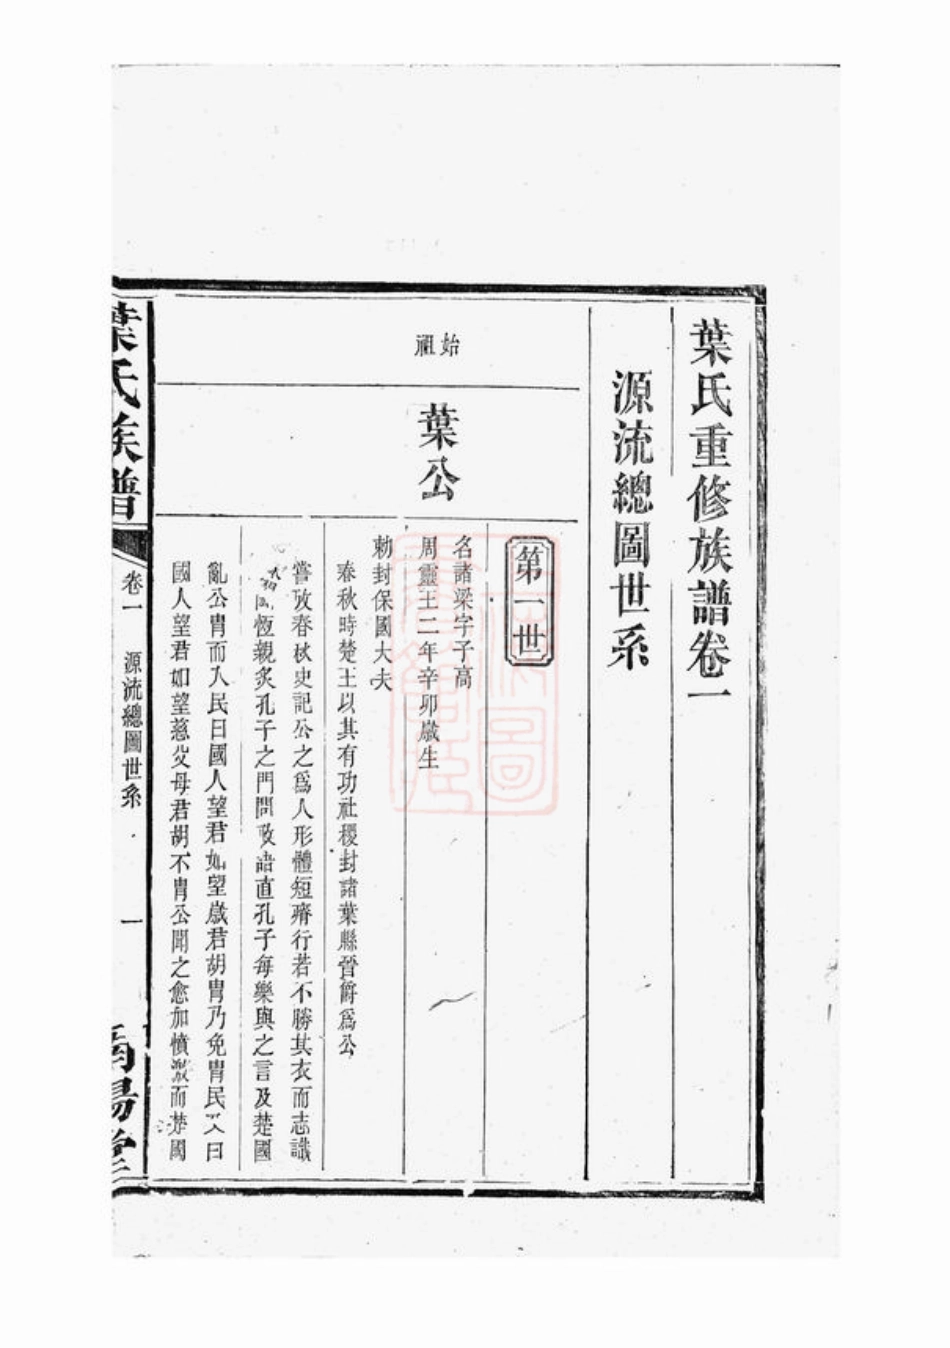 葉氏重修族譜卷一
源流總圖世系
始祖
葉公
第一世
名諸梁字子高
周靈王二年辛卯歲生
勅封保國大夫
春秋時楚王以其有功社稷封諸葉縣晉爵為公
嘗攷春秋史記公之為人形體短瘠行若不勝其衣而志識
恆親炙孔子之門問政語直孔子每樂與之言及楚國
亂公胄而入民曰國人望君如望歲君胡胄乃免胄民又曰
國人望君如望慈父母君胡不胄公聞之愈加憤激而楚國
葉氏族譜
卷一
源流總圖世系
一
南陽堂